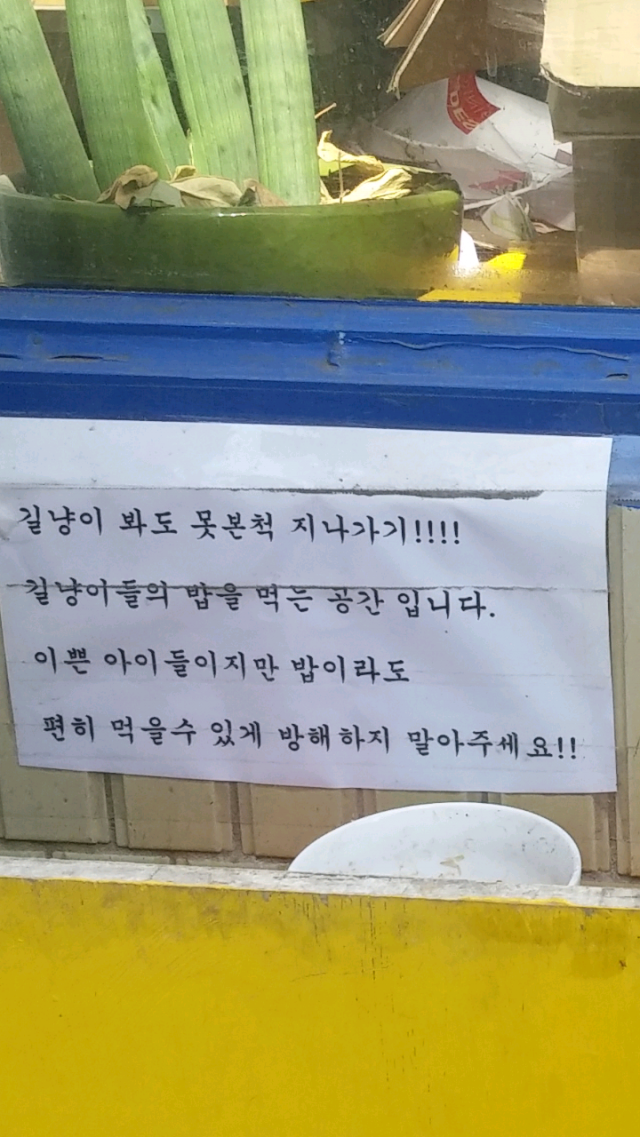 길냥이 봐도 못본척 지나가기!!!!
길냥이들의 밥을 먹는 공간 입니다.
이쁜 아이들이지만 밥이라도
편히 먹을수 있게 방해하지 말아주세요!!